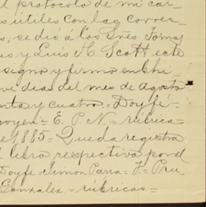 l protocolo de mi car
s útiles con la q corres
s, se dió a los Sres Tomas
as y Luis H. Scott, este
segno y firmo en Chi
ve dias del mes de agosto
nta y cuatro = Doyfe =
oyen = E. P. N. = rúbrica
e 1885 = Queda registra
libro respectivo por d
Doyfe = Simon Parra = J. Pru
Gonzales = rúbricas =